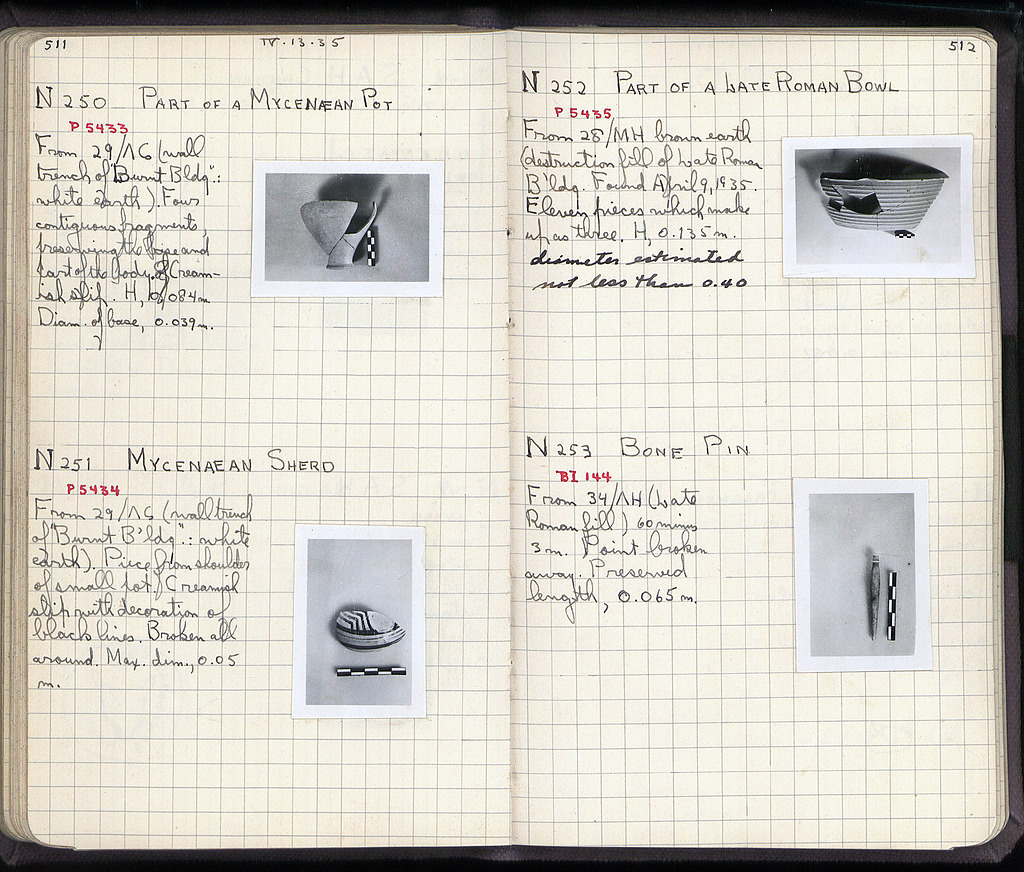 511
IV·13·35
N 250 PART OF A MYCENÆAN POT
P 5433
From 29/ΛΣ (wall
trench of "Burnt Bldg.":
white earth). Four
contiguous fragments,
preserving the base and
part of the body. Cream-
ish slip. H, 0.084m.
Diam. of base, 0.039m.
N 251 MYCENAEAN SHERD
P 5434
From 29/ΛΣ (wall trench
of "Burnt B'ldg.": white
earth). Piece from shoulder
of small pot. Creamish
slip with decoration of
black lines. Broken all
around. Max. dim., 0.05
m.
512
N 252 PART OF A LATE ROMAN BOWL
P 5435
From 28/MH brown earth
(destruction fill of Late Roman
B'ldg. Found April 9, 1935.
Eleven pieces which make
up as three. H, 0.135m.
diameter estimated
not less than 0.40
N 253 BONE PIN
BI 144
From 34/ΛH (Late
Roman fill) 60 minus
3m. Point broken
away. Preserved
length, 0.065m.